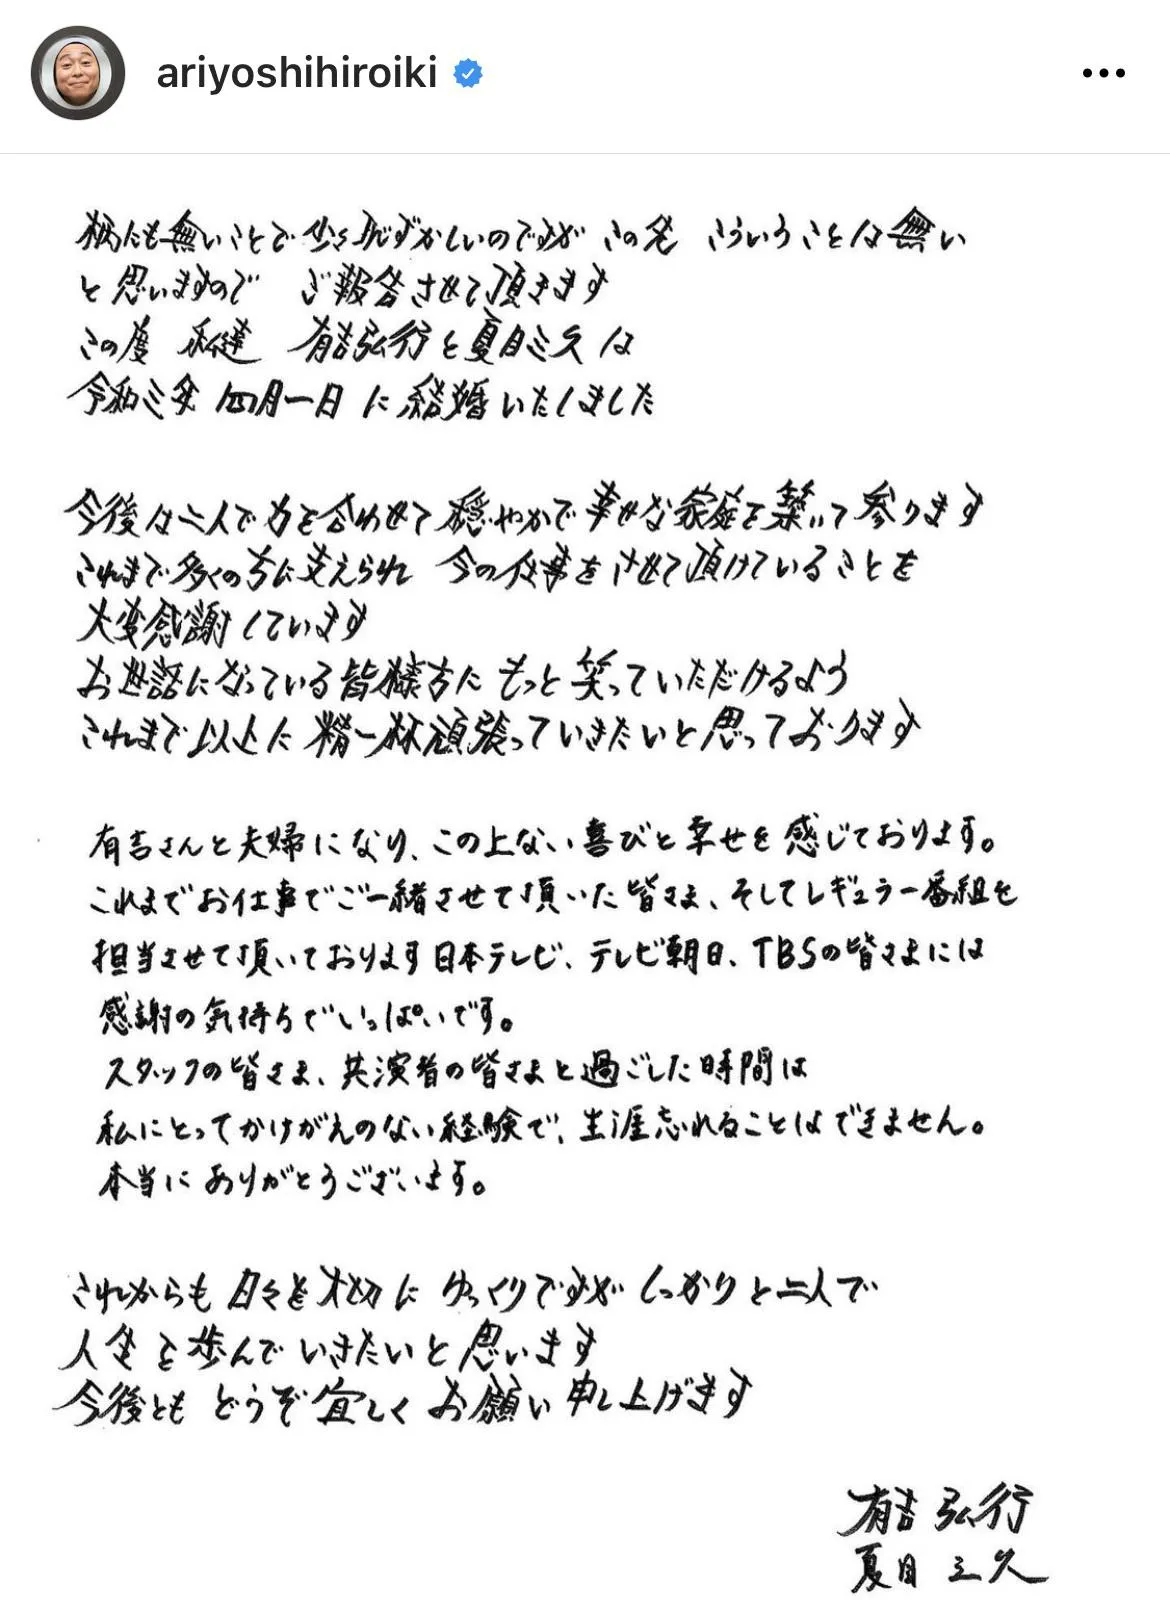 ariyoshihiroiki
柄にも無いことで少々恥ずかしいのですが この先 こういうことは無い
と思いますので ご報告させて頂きます
この度 私達 有吉弘行と夏目三久は
令和三年 四月一日 に 結婚いたしました
今後は二人で力を合わせて 穏やかで幸せな家庭を築いて参ります
これまで多くの方に支えられ 今の仕事をさせて頂けていることを
大変感謝しています
お世話になっている皆様方に もっと笑っていただけるよう
これまで以上に 精一杯頑張っていきたいと思っております
有吉さんと夫婦になり、この上ない喜びと幸せを感じております。
これまでお仕事でご一緒させて頂いた皆さま、そしてレギュラー番組を
担当させて頂いております日本テレビ、テレビ朝日、TBSの皆さまには
感謝の気持ちでいっぱいです。
スタッフの皆さま、共演者の皆さまと過ごした時間は
私にとってかけがえのない経験で、生涯忘れることはできません。
本当にありがとうございます。
これからも 日々を大切に ゆっくりですが しっかりと二人で
人生を歩んでいきたいと思います
今後とも どうぞ宜しく お願い申し上げます
有吉 弘行
夏目 三久